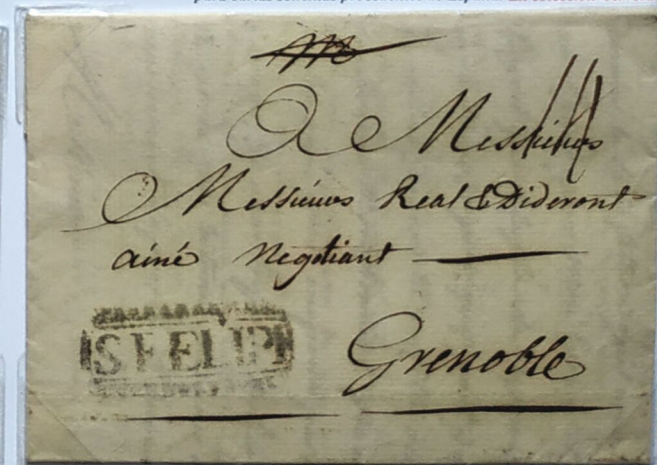 A Messieurs
Messieurs Real & Dideront
ainé Negotiant
S FELIP
Grenoble